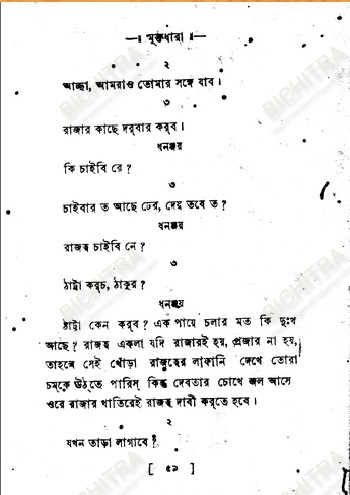 —॥ মুক্তধারা ॥—
২
আচ্ছা, আমরাও তোমার সঙ্গে যাব।
৩
রাজার কাছে দরবার করব।
ধনঞ্জয়
কি চাইবি রে?
৩
চাইবার ত আছে ঢের, দেয় তবে ত?
ধনঞ্জয়
রাজত্ব চাইবি নে?
৩
ঠাট্টা কর্‌চ, ঠাকুর?
ধনঞ্জয়
ঠাট্টা কেন করব? এক পায়ে চলার মত কি দুঃখ
আছে? রাজত্ব একলা যদি রাজারই হয়, প্রজার না হয়,
তাহলে সেই খোঁড়া রাজত্বের লাফানি দেখে তোরা
চম্‌কে উঠ্‌তে পারিস্ কিন্তু দেবতার চোখে জল আসে
ওরে রাজার খাতিরেই রাজত্ব দাবী কর্‌তে হবে।
২
যখন তাড়া লাগাবে?
[ ৫৯ ]
BICHITRA